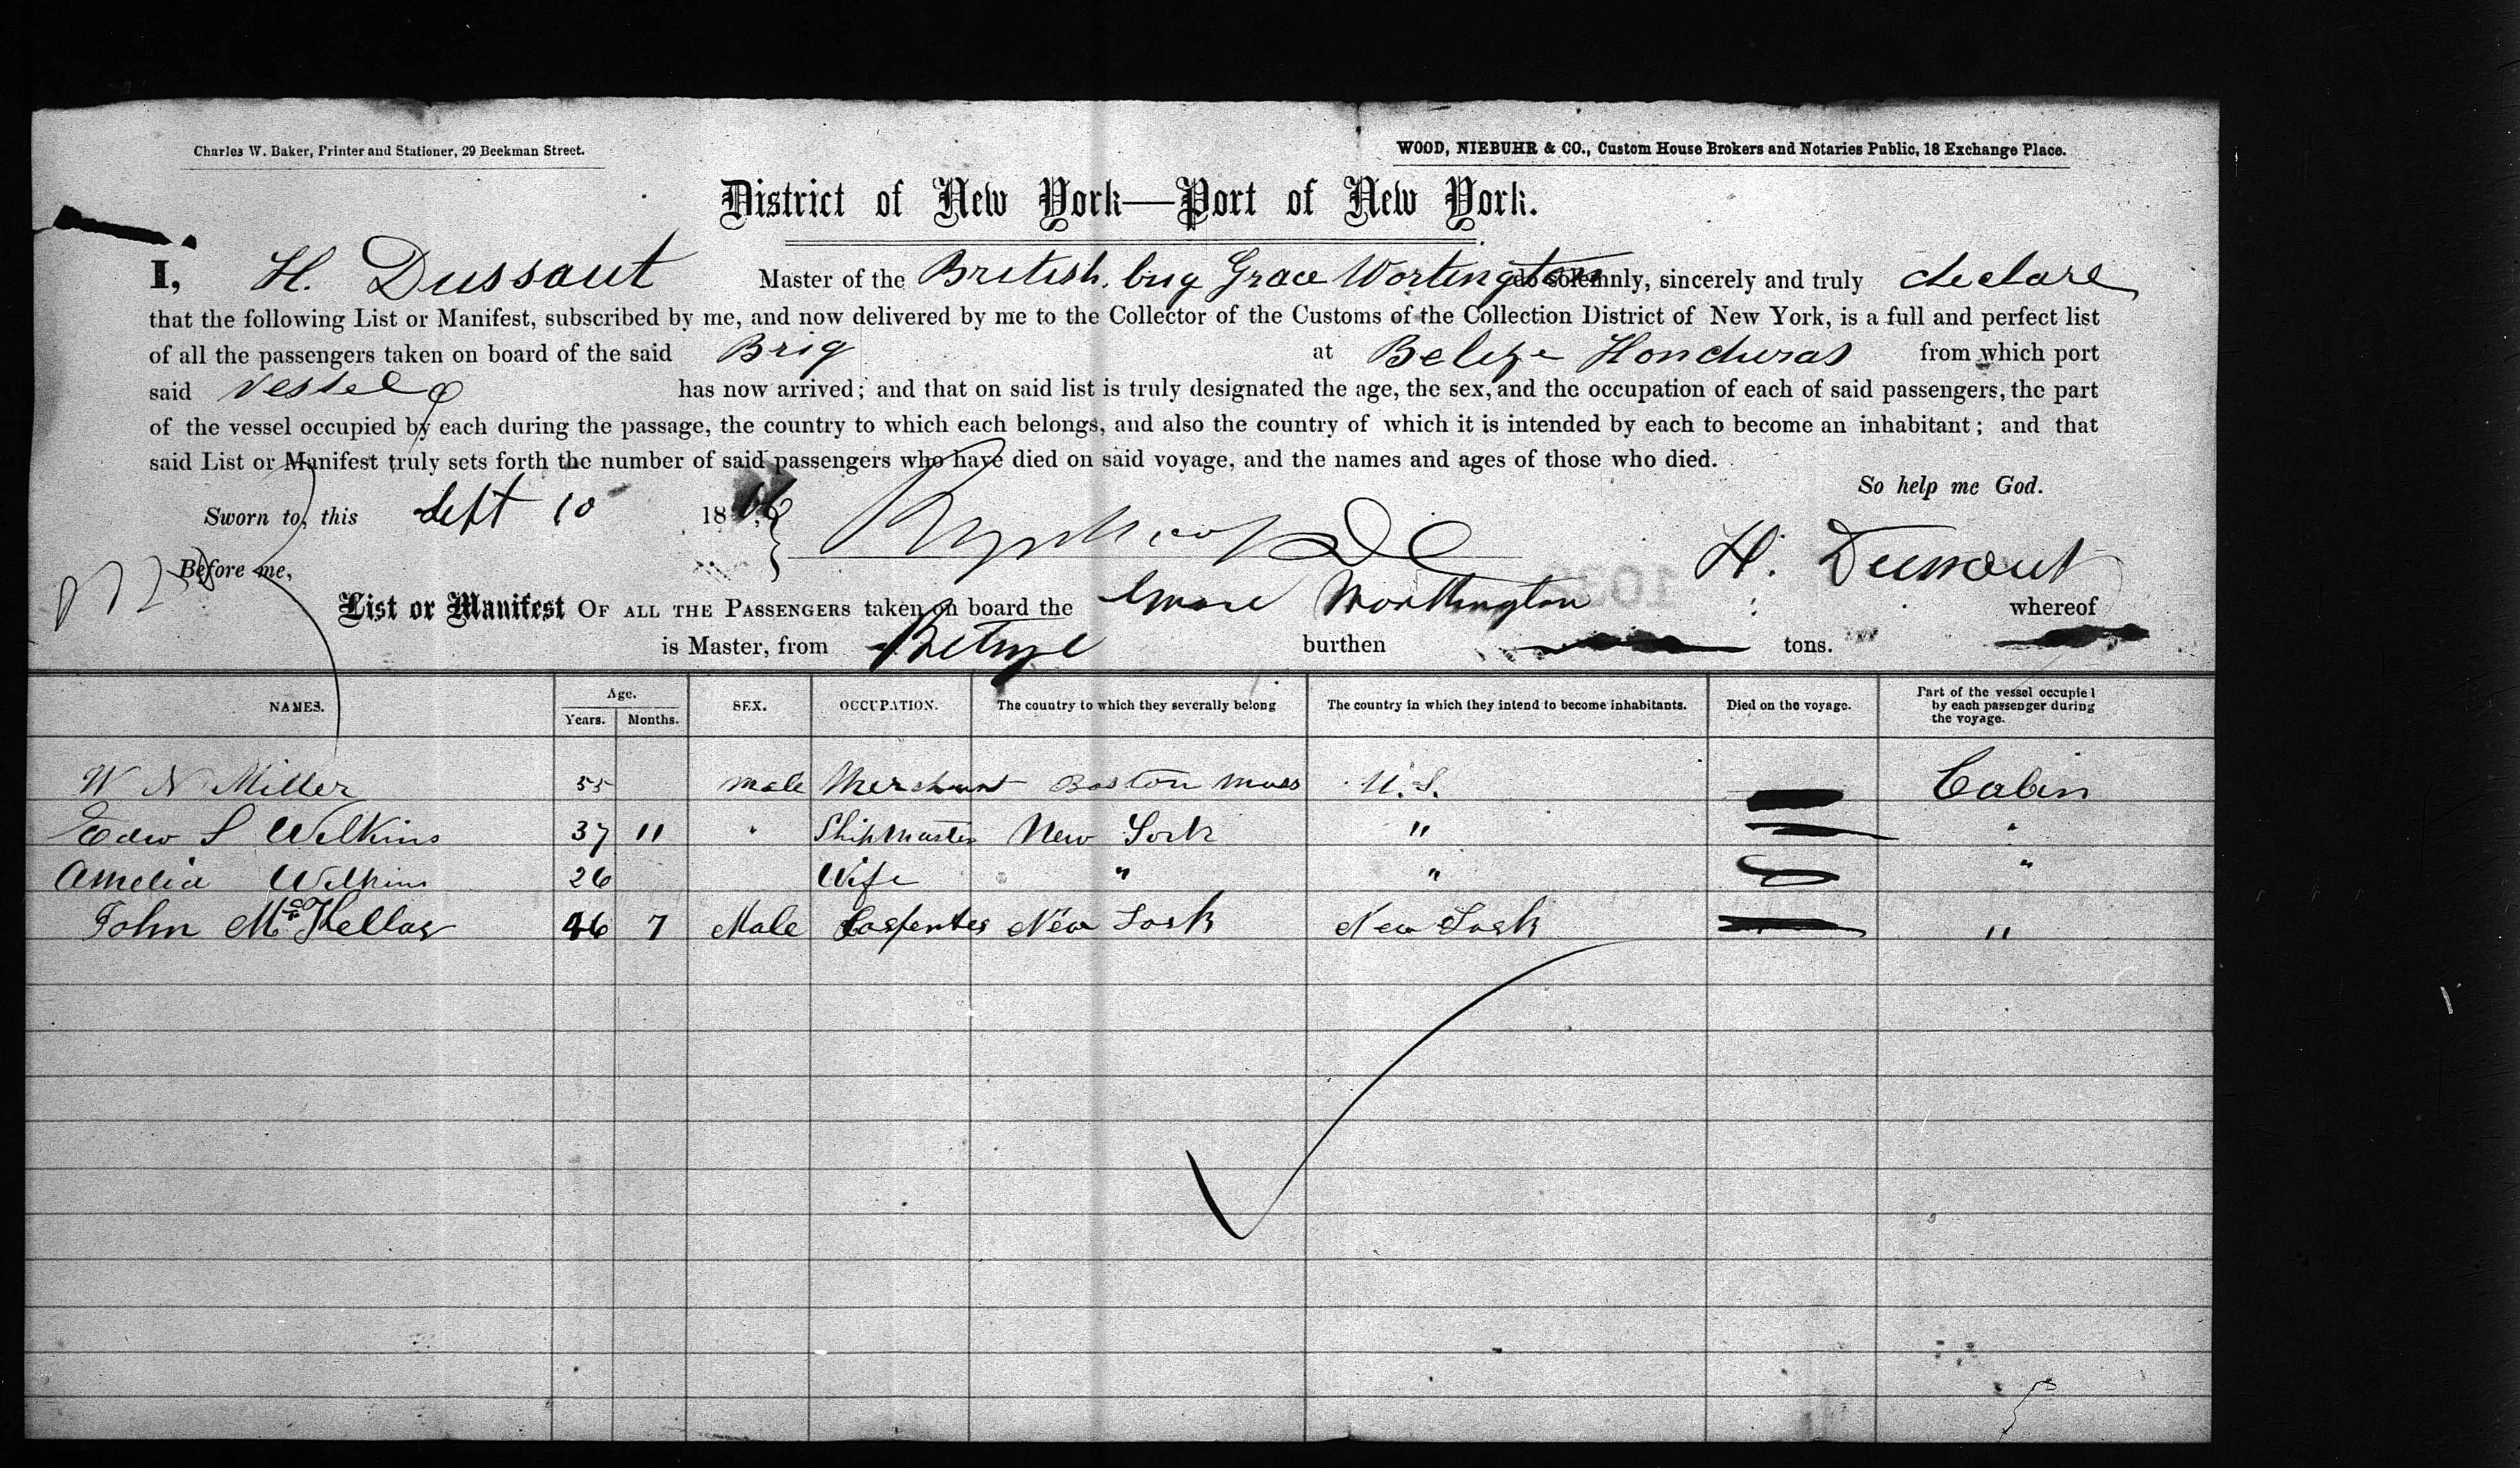 Charles W. Baker, Printer and Stationer, 29 Beekman Street.
WOOD, NIEBUHR & CO., Custom House Brokers and Notaries Public, 18 Exchange Place.
District of New York—Port of New York.
I, H. Dussaut Master of the British brig Grace Wortington do solemnly, sincerely and truly declare
that the following List or Manifest, subscribed by me, and now delivered by me to the Collector of the Customs of the Collection District of New York, is a full and perfect list
of all the passengers taken on board of the said Brig at Belize Honduras from which port
said vessel has now arrived; and that on said list is truly designated the age, the sex, and the occupation of each of said passengers, the part
of the vessel occupied by each during the passage, the country to which each belongs, and also the country of which it is intended by each to become an inhabitant; and that
said List or Manifest truly sets forth the number of said passengers who have died on said voyage, and the names and ages of those who died.
So help me God.
Sworn to, this Sept 10 1866
H. Dussaut
Before me,
List or Manifest OF ALL THE PASSENGERS taken on board the Worthington whereof
is Master, from burthen tons.
NAMES. Age. Years. Months. SEX. OCCUPATION. The country to which they severally belong The country in which they intend to become inhabitants. Died on the voyage. Part of the vessel occupied by each passenger during the voyage.
W N Miller 55 male Merchant Boston Mass U.S. Cabin
Edw S Wilkins 37 11 " Shipmaster New York " "
Amelia Wilkins 26 Wife " " "
John McKellar 46 7 Male Carpenter New York New York "